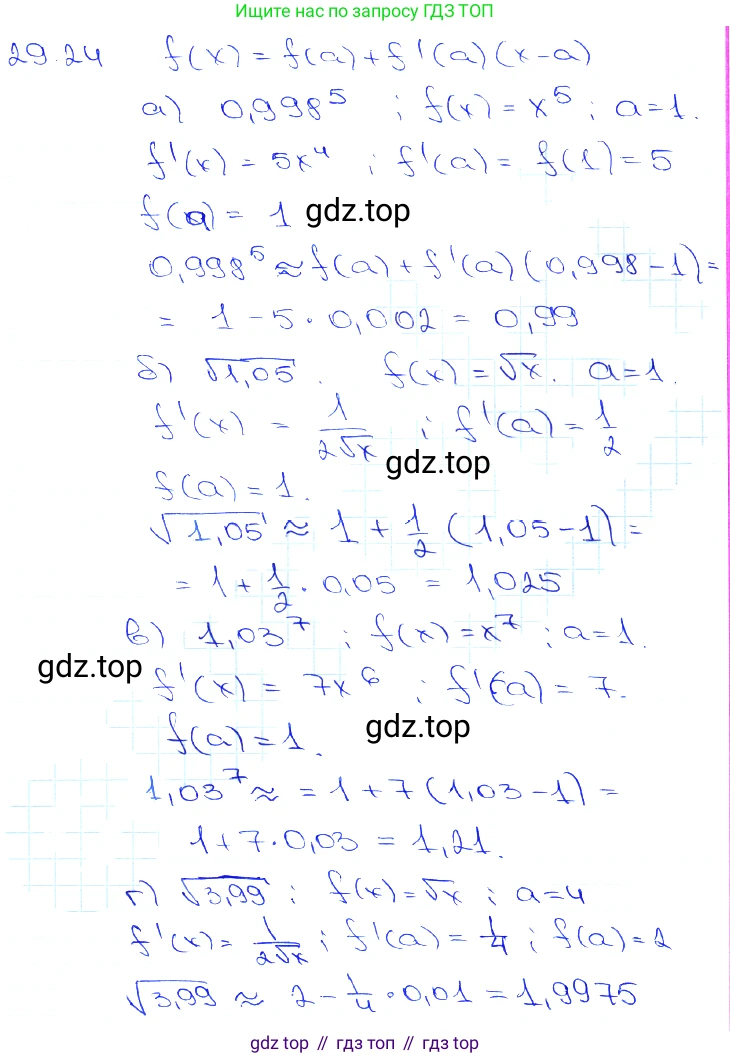 Ищите нас по запросу ГДЗ ТОП
29.24 f(x) = f(a) + f'(a)(x-a)
а) 0,998⁵ ; f(x) = x⁵ ; a=1.
f'(x) = 5x⁴ ; f'(a) = f(1) = 5
f(a) = 1 gdz.top
0,998⁵ ≈ f(a) + f'(a)(0,998-1) =
= 1 - 5 · 0,002 = 0,99
б) √1,05 . f(x) = √x. a=1.
f'(x) = 1/(2√x) ; f'(a) = 1/2
gdz.top
f(a) = 1.
√1,05 ≈ 1 + 1/2 (1,05-1) =
= 1 + 1/2 · 0,05 = 1,025
в) 1,03⁷ ; f(x) = x⁷ ; a=1.
gdz.top
f'(x) = 7x⁶ ; f'(a) = 7.
gdz.top
f(a) = 1.
1,03⁷ ≈ = 1 + 7(1,03-1) =
1 + 7·0,03 = 1,21.
г) √3,99 ; f(x) = √x ; a=4
f'(x) = 1/(2√x) ; f'(a) = 1/4 ; f(a) = 2
√3,99 ≈ 2 - 1/4 · 0,01 = 1,9975
gdz.top // гдз топ // гдз.top